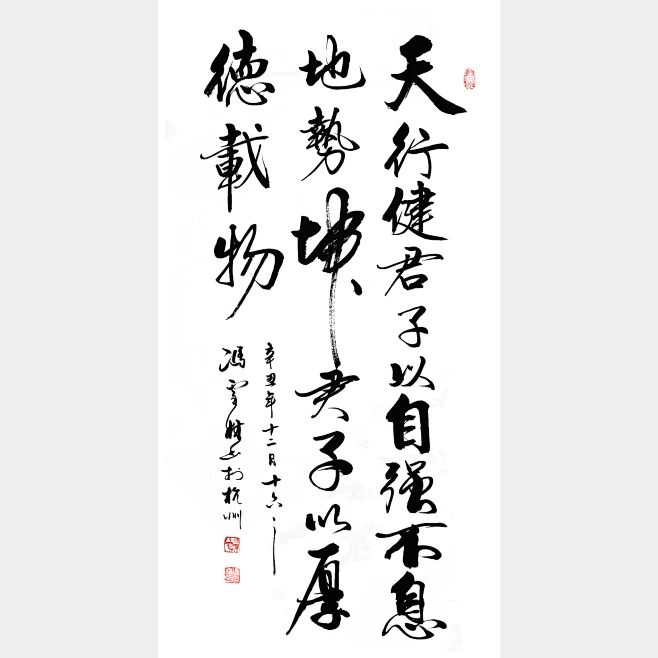 天行健君子以自强不息
地勢坤君子以厚
德載物
辛丑年十二月十六
馮雪书於杭州